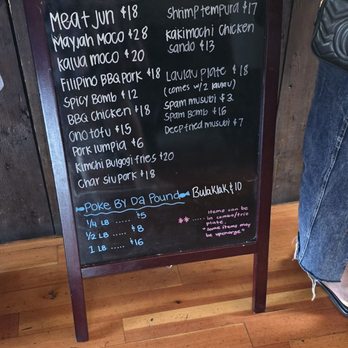 Meat jun $18
Mayjah Moco $28
kalua moco $20
Filipino BBQ pork $18
Spicy Bomb $12
BBQ chicken $18
Ono tofu $15
Pork lumpia $6
Kimchi Bulgogi fries $20
Char siu pork $18
shrimp tempura $17
kakimochi chicken
sando $13
Laulau plate $18
(comes w/2 laulau)
Spam musubi $3
Spam Bomb $16
Deep fried musubi $7
Poke By Da Pound
1/4 LB ..... $5
1/2 LB ..... $8
1 LB ..... $16
Bulaklak $10
** ..... items can be
in combo/fric
plate
*some items may
be upcharge*